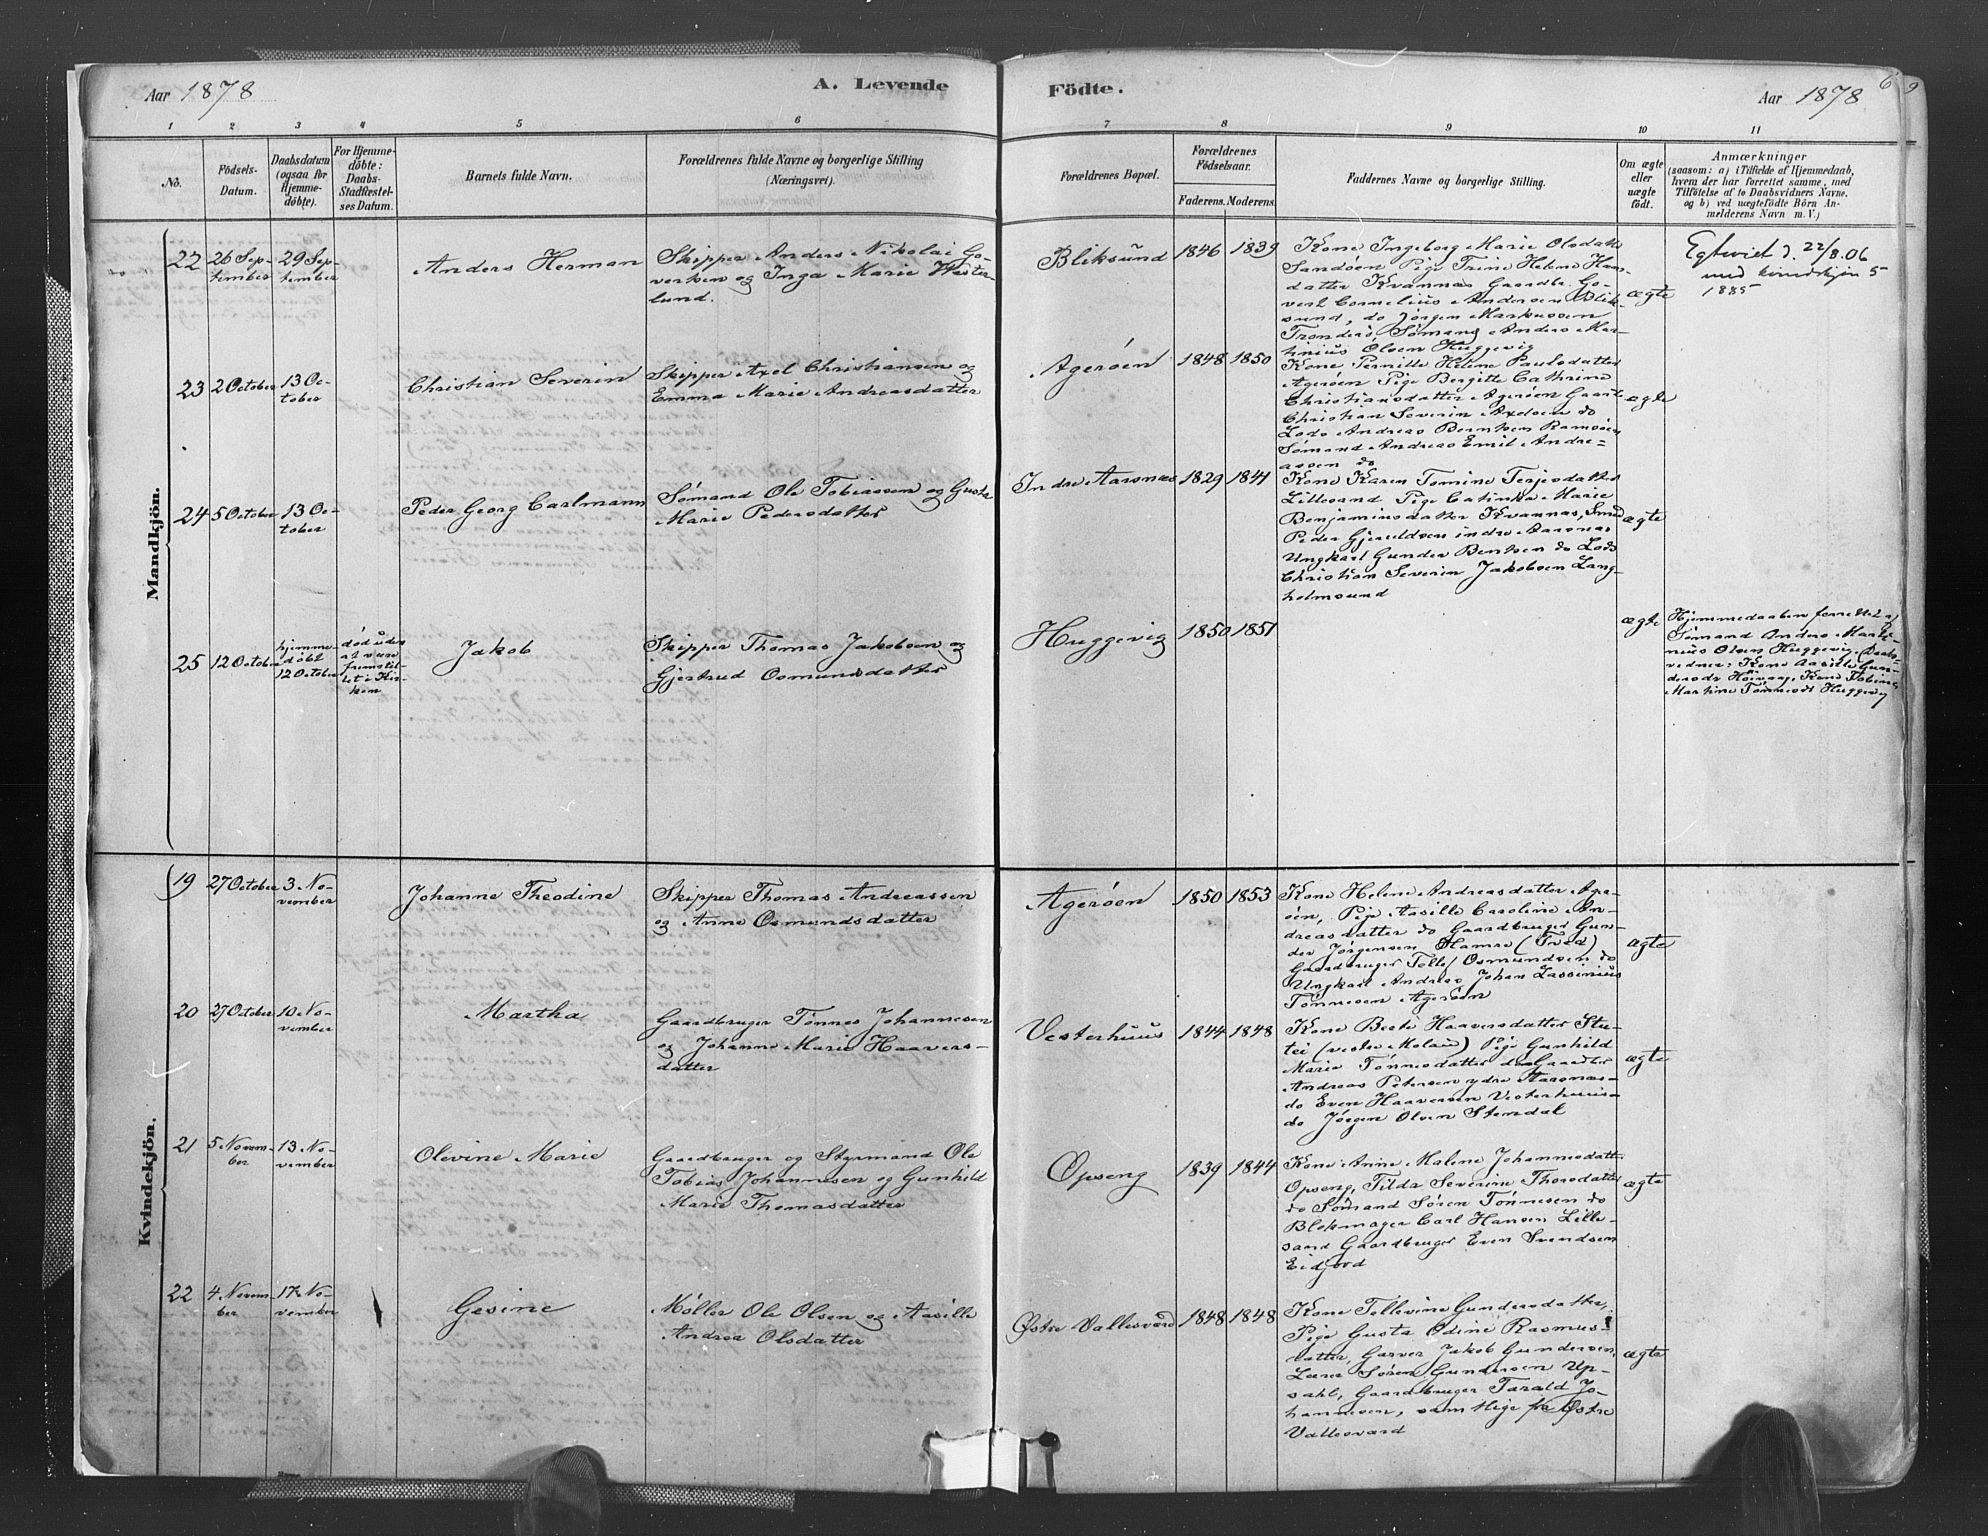 Aar 1878
A. Levende
Födte.
Aar 1878
6
9
1
2
3
4
5
6
7
8
9
10
11
No.
Födsels-
Datum.
Daabsdatum
(ogsaa for
Hjemme-
döbte).
For Hjemme-
döbte:
Daabs-
Stadfæstel-
ses Datum.
Barnets fulde Navn.
Forældrenes fulde Navne og borgerlige Stilling
(Næringsvei).
Forældrenes Bopæl.
Forældrenes
Födselsaar.
Faderens. Moderens.
Faddernes Navne og borgerlige Stilling.
Om ægte
eller
uægte
födt.
Anmærkninger
(saasom: a) i Tilfælde af Hjemmedaab,
hvem der har forrettet samme, med
Tilföielse af to Daabsvidners Navne,
og b) ved uægtefödte Börn An-
melderens Navn m. V.)
Mandkjön.
22
26 Sep-
tember
29 Sep-
tember
Anders Herman
Skipper Anders Nikolai Go-
verken og Inga Marie Wester-
lund.
Bliksund
1846
1839
Kone Ingeborg Marie Olsdatt
Sandöen Pige Trine Helene Han-
datter Kvannas Gaardbr. Go-
vert Cornelius Andersen Blik-
sund, do Jörgen Markussen
Tronderö Sömand Anders Mar-
tinius Olsen Huggevig
ægte
Egteviet d. 22/8.06
med kvindekjön 5
1885
23
2 October
13 Oc-
tober
Christian Severin
Skipper Axel Christiansen og
Emma Marie Andreasdatter
Ageröen
1848
1850
Kone Pernille Helene Paulsdatter
Ageröen Pige Bergitte Cathrine
Christiansdatter Ageröen Gaardb
Christian Severin Axelsen do
Lods Andreas Berntsen Ramsöen
Sömand Andreas Emil Andre-
assen do
ægte
24
5 October
13 Oc-
tober
Peder Georg Carlmann
Sömand Ole Tobiassen og Gusta
Marie Pedersdatter
Indre Aarsnæs
1829
1841
Kone Karen Tomine Terjesdatter
Lillesand Pige Catinka Marie
Benjaminsdatter Kvannas, Smed
Peder Gjeruldsen indre Aarsnas
Ungkarl Gunder Bentsen do Lods
Christian Severin Jakobsen Lang-
holmsund
ægte
25
12 October
hjemme
döbt
12 October
död uden
at være
fremstil-
let i Kir-
ken
Jakob
Skipper Thomas Jakobsen og
Gjertrud Osmundsdatter
Huggevig
1850
1851
ægte
Hjemmedaaben forrettet af
Sömand Anders Marti-
nius Olsen Huggevig. Daabs-
vidner: Kone Aasille Gun-
dersdr Höivaag, Kone Tobine
Martine Tönnesdr Huggevig
Kvindekjön.
19
27 October
3 No-
vember
Johanne Theodine
Skipper Thomas Andreassen
og Anne Osmundsdatter
Ageröen
1850
1853
Kone Helene Andreasdatter Age-
öen, Pige Aasille Caroline An-
dreasdatter do Gaardbruger Gun-
der Jörgensen Hamre (Tved)
Gaardbruger Tellef Osmundsen do
Ungkarl Andreas Johan Lassinius
Tönnesen Ageröen
ægte
20
27 October
10 No-
vember
Martha
Gaardbruger Tönnes Johannesen
og Johanne Marie Haavers-
datter
Vesterhuus
1844
1848
Kone Berte Haaversdatter Stu-
tei (vestre Moland) Pige Gunhild
Marie Tönnesdatter do Gaardbr
Andreas Petersen ydre Aarsnas-
do Even Haaversen Vesterhuus-
do Jörgen Olsen Stendal
ægte
21
5 Novem-
ber
13 No-
vember
Olevine Marie
Gaardbruger og Styrmand Ole
Tobias Johannesen og Gunhild
Marie Thomasdatter
Opseng
1839
1844
Kone Anne Malene Johannesdatter
Opseng, Tilda Severine Thorsdatter
do Sömand Sören Tönnesen do
Blokmager Carl Hansen Lille-
sand Gaardbruger Even Svendsen
Eidjord
ægte
22
4 Novem-
ber
17 No-
vember
Gesine
Möller Ole Olsen og Aasille
Andrea Olsdatter
Østre Vallesværd
1848
1848
Kone Tellevine Gundersdatter,
Pige Gusta Odine Rasmus-
datter, Garver Jakob Gundersen,
Lærer Sören Gundersen Up-
sahl, Gaardbruger Tarald Jo-
hannesen, samtlige fra Østre
Vallesværd
ægte